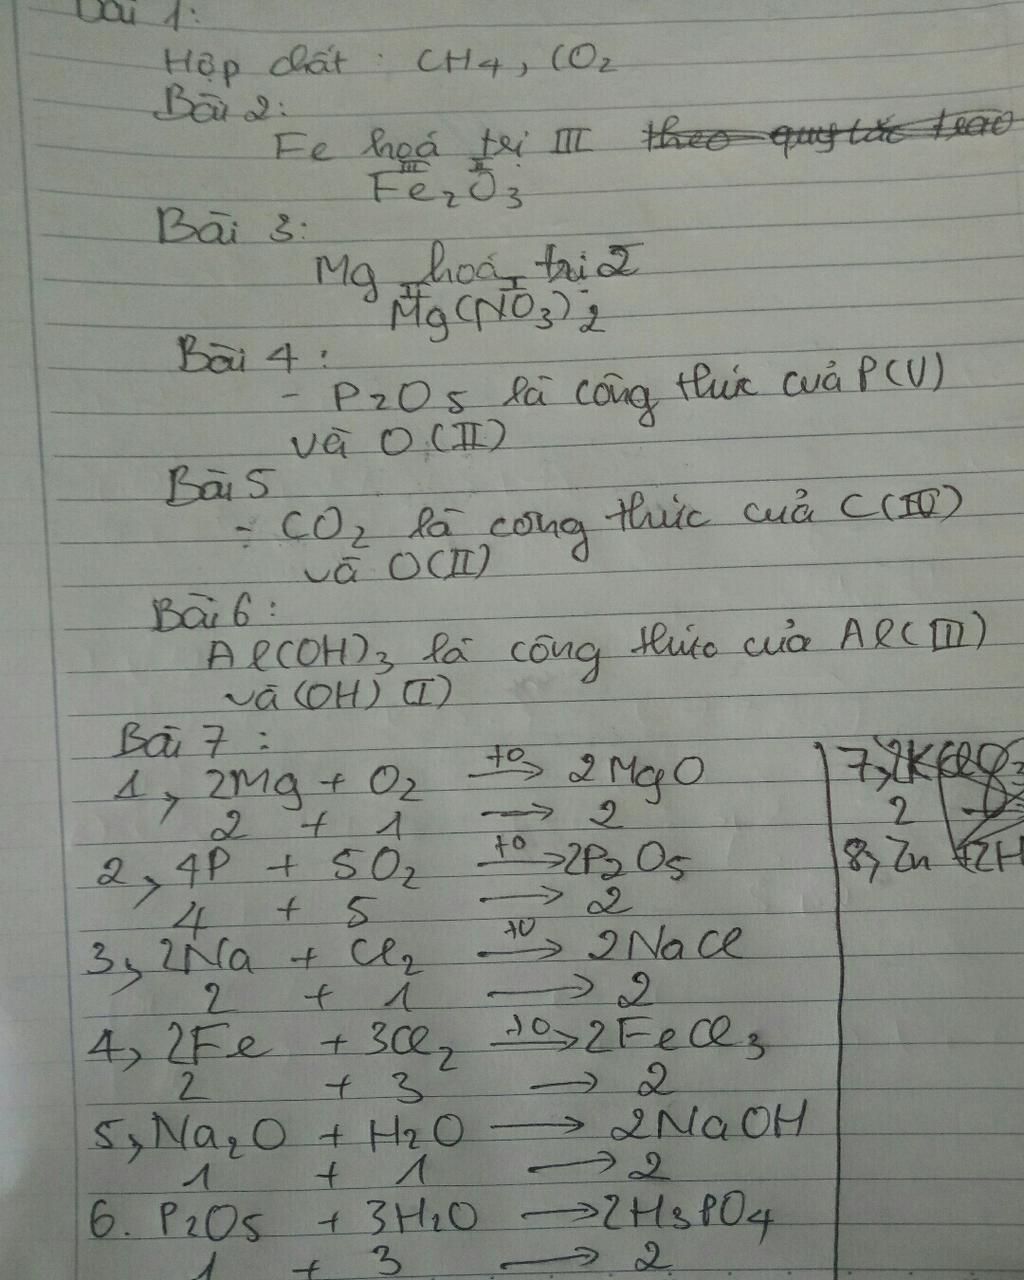 Bài 1:
Hợp chất : CH4, CO2
Bài 2:
Fe hoá trị III theo quy tắc
III II
Fe2O3
Bài 3:
Mg hoá trị 2
II I
Mg(NO3)2
Bài 4:
- P2O5 là công thức của P(V)
và O(II)
Bài 5
- CO2 là công thức của C(IV)
và O(II)
Bài 6:
Al(OH)3 là công thức của Al(III)
và (OH) (I)
Bài 7:
1, 2Mg + O2 to→ 2MgO
2 + 1 → 2
2, 4P + 5O2 to→ 2P2O5
4 + 5 → 2
3, 2Na + Cl2 to→ 2NaCl
2 + 1 → 2
4, 2Fe + 3Cl2 to→ 2FeCl3
2 + 3 → 2
5, Na2O + H2O → 2NaOH
1 + 1 → 2
6. P2O5 + 3H2O → 2H3PO4
1 + 3 → 2
7, 2KClO3
2 →
8, Zn + 2H